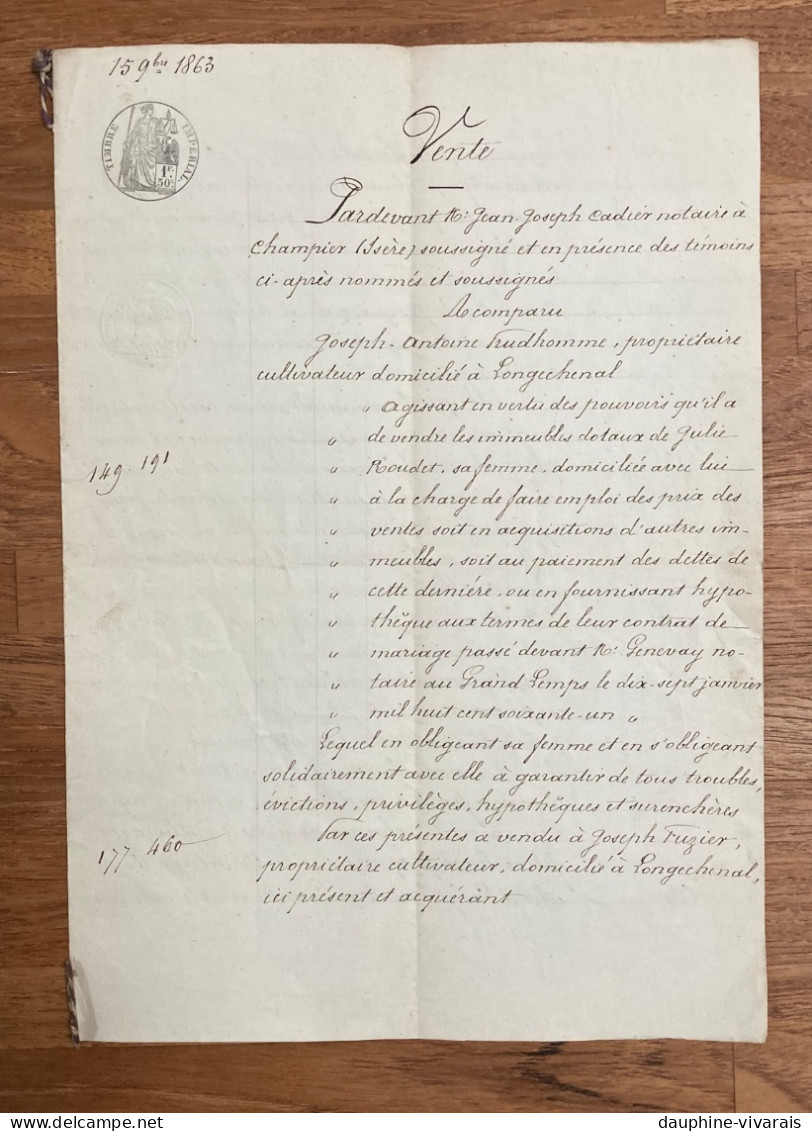 15 9bre 1863
TIMBRE IMPERIAL
1F.
50C.
Vente
Pardevant Me. Jean-Joseph Cadier notaire à
Champier (Isère) soussigné et en présence des témoins
ci-après nommés et soussignés
A comparu
Joseph-Antoine Prudhomme, propriétaire
cultivateur domicilié à Longechenal
" agissant en vertu des pouvoirs qu'il a
" de vendre les immeubles dotaux de Julie
149 - 191
" Roudet, sa femme, domiciliée avec lui
" à la charge de faire emploi des prix des
" ventes soit en acquisitions d'autres im-
" meubles, soit au paiement des dettes de
" cette dernière, ou en fournissant hypo-
" thèque aux termes de leur contrat de
" mariage passé devant Me. Genevay no-
" taire au Grand Lemps le dix-sept janvier
" mil huit cent soixante-un "
Lequel en obligeant sa femme et en s'obligeant
solidairement avec elle à garantir de tous troubles,
évictions, privilèges, hypothèques et surenchères
Par ces présentes a vendu à Joseph Fuzier,
177 460
propriétaire cultivateur, domicilié à Longechenal,
ici présent et acquérant
dauphine-vivarais